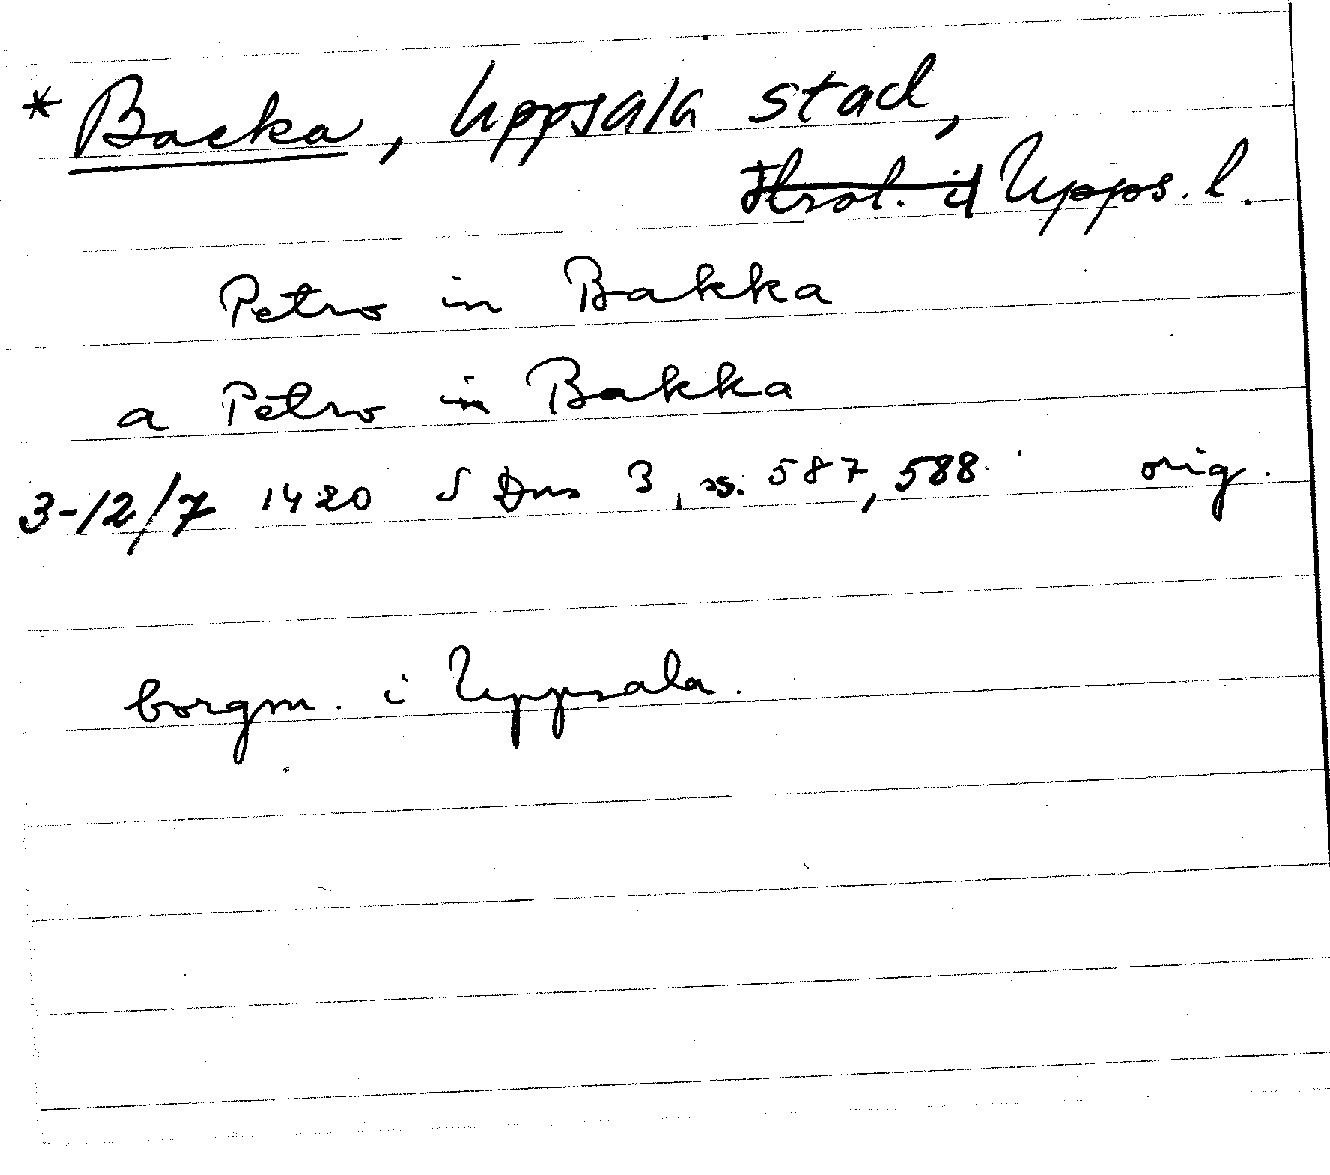 * Backa, Uppsala stad,
Upps. l.
Petro in Bakka
a Petro in Bakka
3-12/7 1420 S Dns 3, ss. 587, 588 orig.
borgm. i Uppsala.